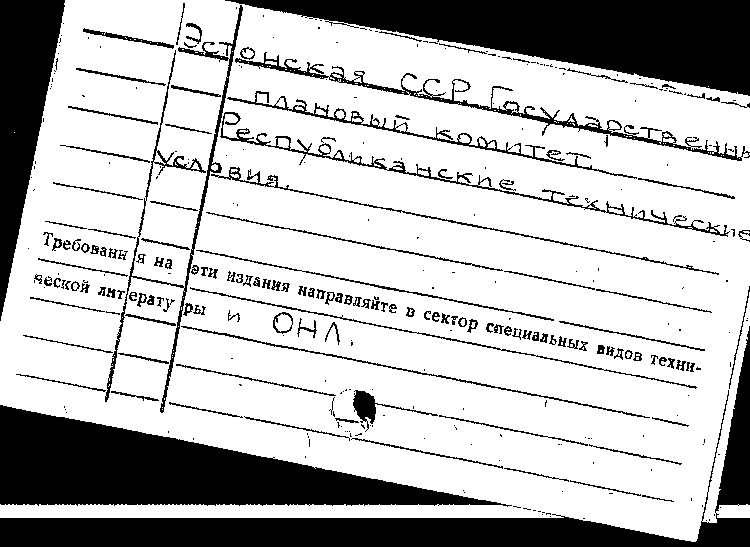 Эстонская ССР. Государственнь
плановый комитет.
Республиканские технические
условия.
Требования на эти издания направляйте в сектор специальных видов техни-
ческой литературы и ОНЛ.